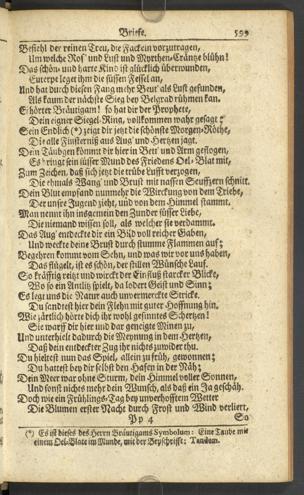 Briefe. 599
Befiehl der reinen Treu, die Fackeln vorzutragen,
Um welche Ros' und Lust und Myrthen-Cräntze blühn!
Das schön- und harte Kind ist glücklich überwunden,
Euterpe leget ihm die süssen Fessel an,
Und hat durch diesen Fang mehr Beut' als Lust gefunden,
Als kaum der nächste Sieg bey Belgrad rühmen kan.
Erhörter Bräutigam! so hat dir der Prophete,
Dein eigner Siegel-Ring, vollkommen wahr gesagt;
Sein Endlich (*) zeigt dir jetzt die schönste Morgen-Röthe,
Die alle Finsterniß aus Aug' und Hertzen jagt.
Dein Täubgen kömmt dir hier in Bett' und Arm geflogen,
Es bringt sein süsser Mund des Friedens Oel-Blat mit,
Zum Zeichen, daß sich jetzt die trübe Lufft verzogen,
Die ehmals Wang' und Brust mit nassen Seuffzern schnitt.
Dein Blut empfand nunmehr die Würckung von dem Triebe,
Der unsre Jugend zieht, und von dem Himmel stammt.
Man nennt ihn insgemein den Zunder süsser Liebe,
Die niemand wissen soll, als welcher sie verdammt.
Das Aug' entdeckte dir ein Bild voll reicher Gaben,
Und weckte deine Brust durch stumme Flammen auf;
Begehren kommt vom Sehn, und was wir vor uns haben,
Das flügelt, ist es schön, der stillen Wünsche Lauf.
So kräfftig reitzt und würckt der Einfluß starcker Blicke,
Wo so ein Antlitz spielt, da lodert Geist und Sinn;
Es legt uns die Natur auch unvermerckte Stricke.
Du sendtest hier dein Flehn mit guter Hoffnung hin.
Wie zärtlich hörte dich ihr wohl gesinntes Schertzen!
Sie warff dir hier und dar geneigte Minen zu,
Und unterhielt dadurch die Meynung in dem Hertzen,
Daß dein entdeckter Zug ihr nichts zuwider thu.
Du hieltest nun das Spiel, allein zu früh, gewonnen;
Du hattest bey dir selbst den Hafen in der Näh;
Dein Meer war ohne Sturm, dein Himmel voller Sonnen,
Und sonst nichts mehr dein Wunsch, als daß ein Ja geschäh.
Doch wie ein Frühlings-Tag bey unverhofftem Wetter
Die Blumen erster Nacht durch Frost und Wind verliert,
Pp 4 So
(*) Es ist dieses des Herrn Bräutigams Symbolum: Eine Taube mit
einem Oel-Blate im Munde, mit der Beyschrifft: Tandem.